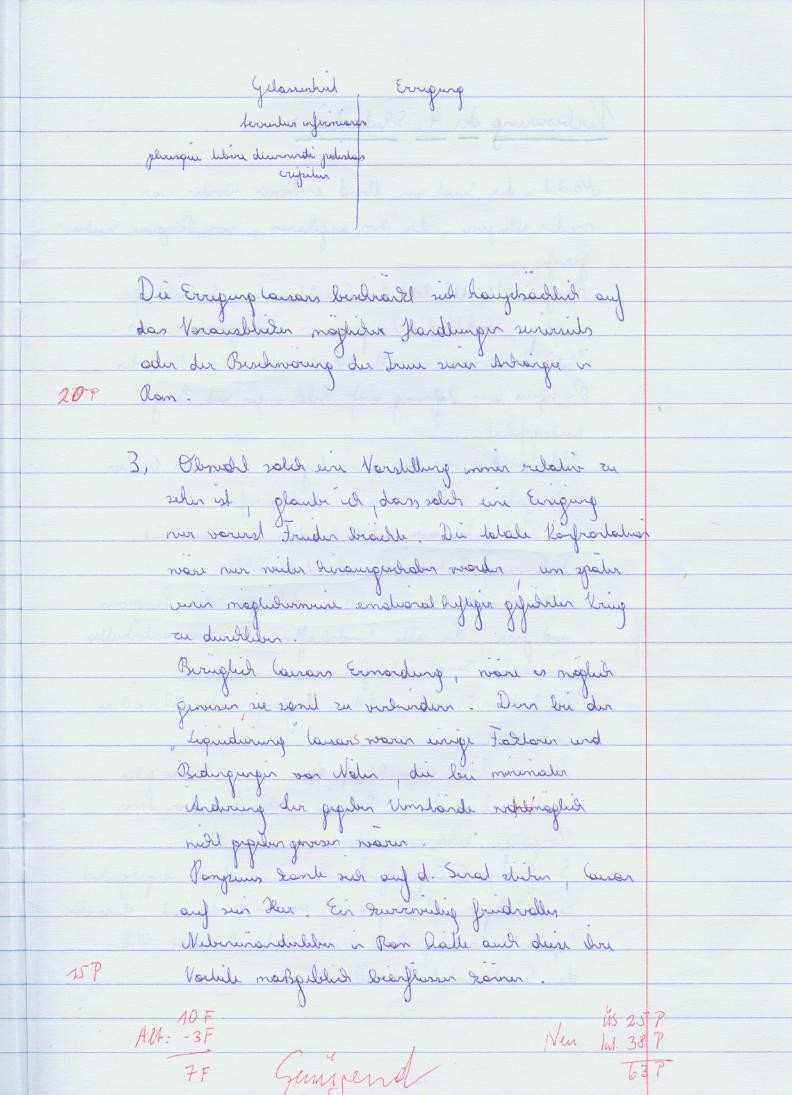 Gelassenheit Erregung
terrentur infirmiores
plerisque libere decernendi potestas
eripitur
Die Erregung Caesars beschränkt sich hauptsächlich auf
das Vorausblicken möglicher Handlungen seinerseits
oder der Beschwörung der Treue seiner Anhänger in
20P Rom.
3, Obwohl solch eine Vorstellung immer relativ zu
sehen ist, glaube ich, dass solch eine Einigung
nur vorerst Frieden brächte. Die totale Konfrontation
wäre nur weiter hinausgeschoben worden, um später
einen möglicherweise emotional heftiger geführten Krieg
zu durchleben.
Bezüglich Caesars Ermordung, wäre es möglich
gewesen sie somit zu verhindern. Denn bei der
"Liquidierung" Caesars waren einige Faktoren und
Bedingungen von Nöten, die bei minimaler
Änderung der gegeben Umstände womöglich
nicht gegeben gewesen wären.
Pompeius konnte sich auf d. Senat stützen, Caesar
auf sein Heer. Ein kurzweilig friedvolles
Nebeneinanderleben in Rom hätte auch diese ihre
15P Vorteile maßgeblich beeinflussen können.
10 F ÜS 25 P
Alt: -3F Neu Int. 38 P
7 F Genügend 63 P